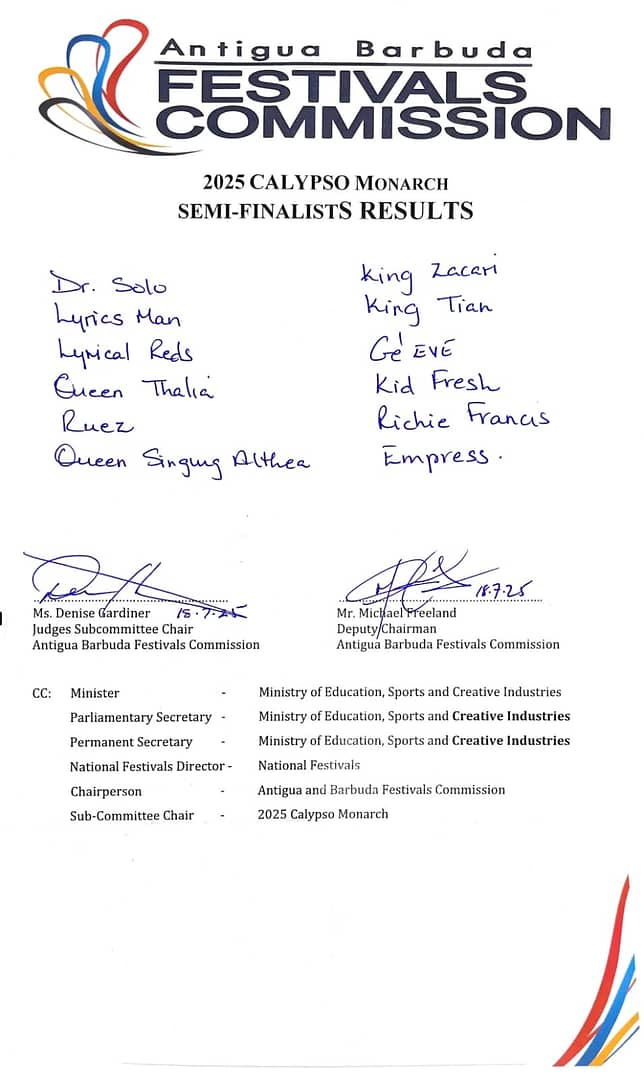 Antigua Barbuda
FESTIVALS
COMMISSION
2025 CALYPSO MONARCH
SEMI-FINALISTS RESULTS
Dr. Solo
Lyrics Man
Lyrical Reds
Queen Thalia
Ruez
Queen Singing Althea
King Zacari
King Tian
Gé EVÉ
Kid Fresh
Richie Francis
Empress.
18.7.25
Ms. Denise Gardiner
Judges Subcommittee Chair
Antigua Barbuda Festivals Commission
18.7.25
Mr. Michael Freeland
Deputy Chairman
Antigua Barbuda Festivals Commission
CC: Minister - Ministry of Education, Sports and Creative Industries
Parliamentary Secretary - Ministry of Education, Sports and Creative Industries
Permanent Secretary - Ministry of Education, Sports and Creative Industries
National Festivals Director - National Festivals
Chairperson - Antigua and Barbuda Festivals Commission
Sub-Committee Chair - 2025 Calypso Monarch